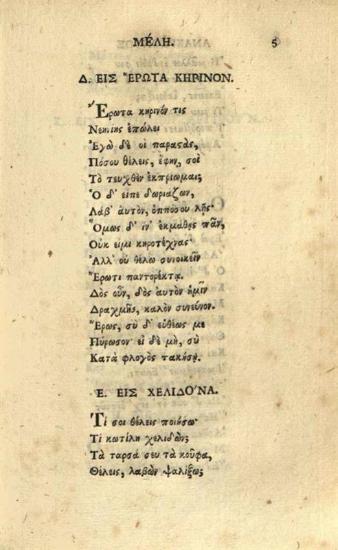 ΜΕΛΗ. 5
Δ. ΕΙΣ ἜΡΩΤΑ ΚΗΡΙΝΟΝ.
Ἔρωτα κηρινόν τις
Νεηνίης ἐπώλει
Ἐγὼ δὲ οἱ παραςὰς,
Πόσου θέλεις, ἔφην, σοὶ
Τὸ τευχθὲν ἐκπρίωμαι;
Ὁ δ' εἶπε δωριάζων,
Λάβ' αὐτὸν, ὁππόσου λῇς·
Ὅμως δ' ἵν' ἐκμάθῃς πᾶν,
Οὐκ εἰμὶ κηροτέχνας·
Ἀλλ' οὐ θέλω συνοικεῖν
Ἔρωτι παντορέκτᾳ.
Δὸς οὖν, δὸς αὐτὸν ἡμῖν
Δραχμῆς, καλὸν σύνευνον.
Ἔρως, σὺ δ' εὐθέως με
Πύρωσον· εἰ δὲ μὴ, σὺ
Κατὰ φλογὸς τακήσῃ.
Ε. ΕΙΣ ΧΕΛΙΔΌΝΑ.
Τί σοι θέλεις ποιήσω·
Τί κωτίλη χελιδών;
Τὰ ταρσά σευ τὰ κοῦφα,
Θέλεις, λαβὼν ψαλίξω;